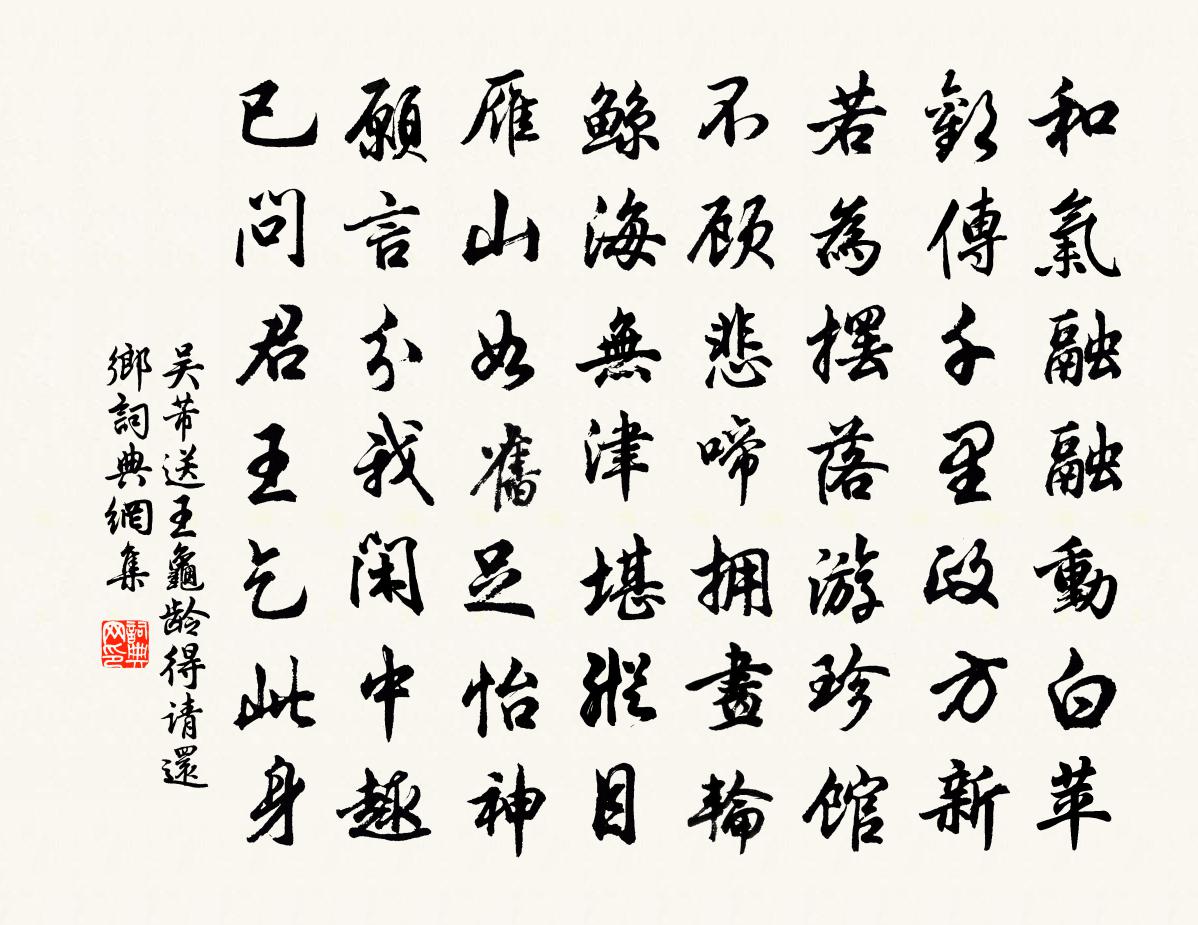 和氣融融動白苹
歡傳千里政方新
若為擺落游珍館
不顧悲啼拥畫輪
鯨海無津堪縱目
雁山如舊足怡神
願言分我閑中趣
已問君王乞此身
吴芾送王龜龄得请還
鄉詞典網集
詞典
网印